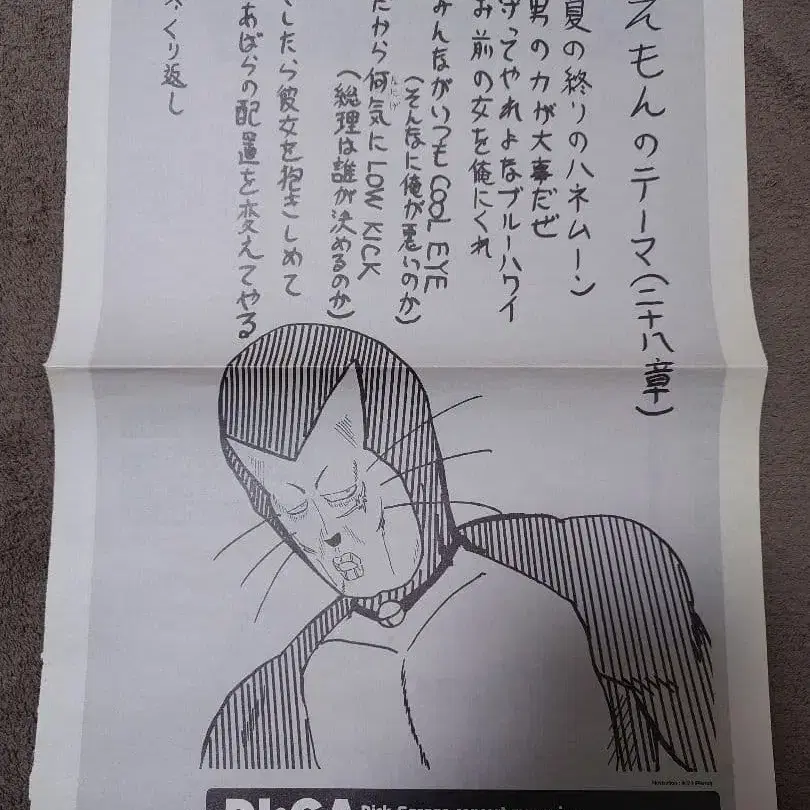 えもんのテーマ(二十八章)
夏の終りのハネムーン)
男の力が大事だぜ
守ってやれよなブルーハワイ
お前の女を俺にくれ
みんながいつもCOOL EYE
(そんなに俺が悪いのか)
だから何気にLOW KICK
なにげ
(総理は誰が決めるのか)
したら彼女を抱きしめて
あばらの配置を変えてやる
くり返し